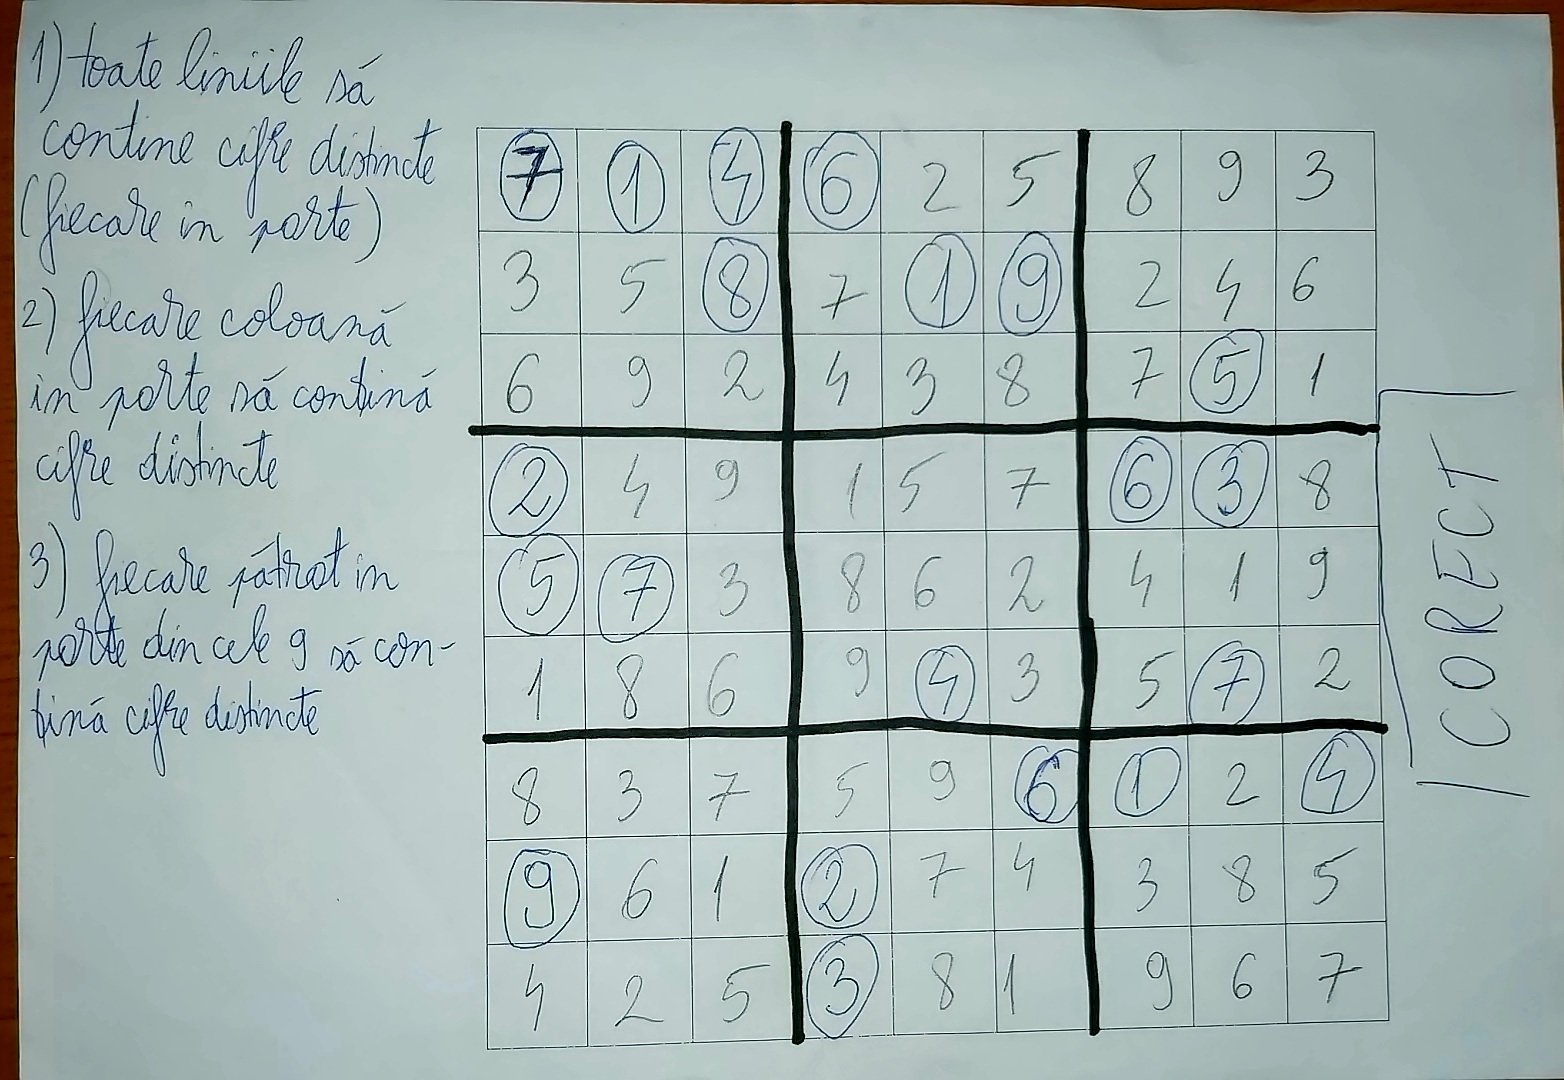 1) toate liniile să
contine cifre distincte
(fiecare in parte)
2) fiecare coloană
in parte să conțină
cifre distincte
3) fiecare pătrat in
parte din cele 9 să con-
țină cifre distincte
7 1 4 6 2 5 8 9 3
3 5 8 7 1 9 2 4 6
6 9 2 4 3 8 7 5 1
2 4 9 1 5 7 6 3 8
5 7 3 8 6 2 4 1 9
1 8 6 9 4 3 5 7 2
8 3 7 5 9 6 1 2 4
9 6 1 2 7 4 3 8 5
4 2 5 3 8 1 9 6 7
CORECT